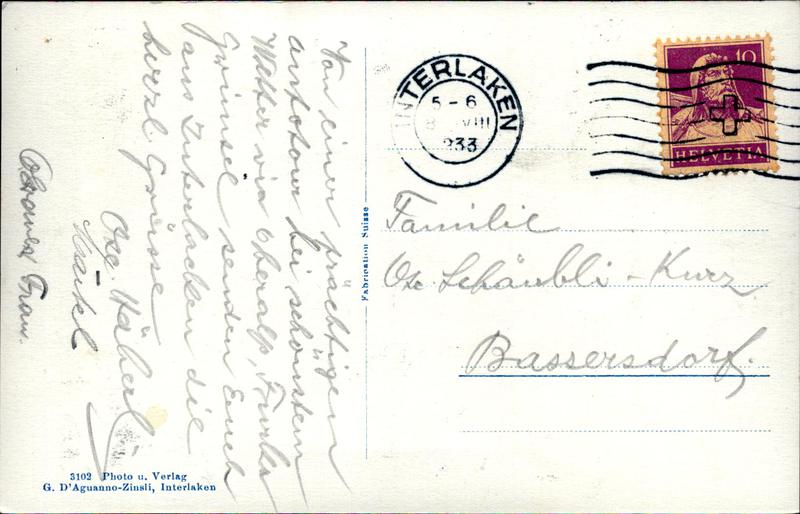 Von einer prächtigen
autotour bei schönstem
Wetter via Oberalp, Furka
Grimsel senden Euch
aus Interlaken die
herzl. Grüsse
Märkel
Fabrication Suisse
INTERLAKEN
5-6
8 VIII
933
10
HELVETIA
Familie
Schäubli-Kurz
Bassersdorf.
3102 Photo u. Verlag
G. D'Aguanno-Zinsli, Interlaken